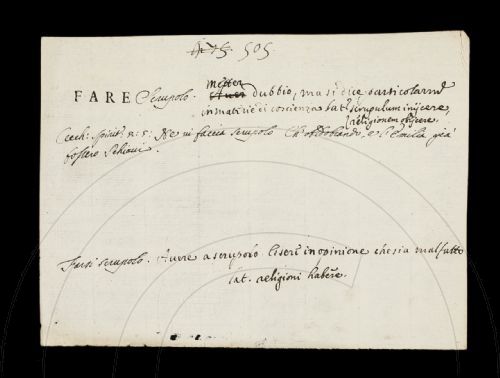 505
Metter
FARE Scrupolo. dubbio, ma si dice particolarmte
in materie di coscienza lat. scrupulum injicere,
religionem obijcere.
Cech: Spirit: 2: 5: Ne vi faccia scrupolo Ch' Aldobrando, e l'Emilia già
fossere Schiavi.
Farsi scrupolo. Avere a scrupolo Essere in opinione che sia malfatto
lat. religioni habere.